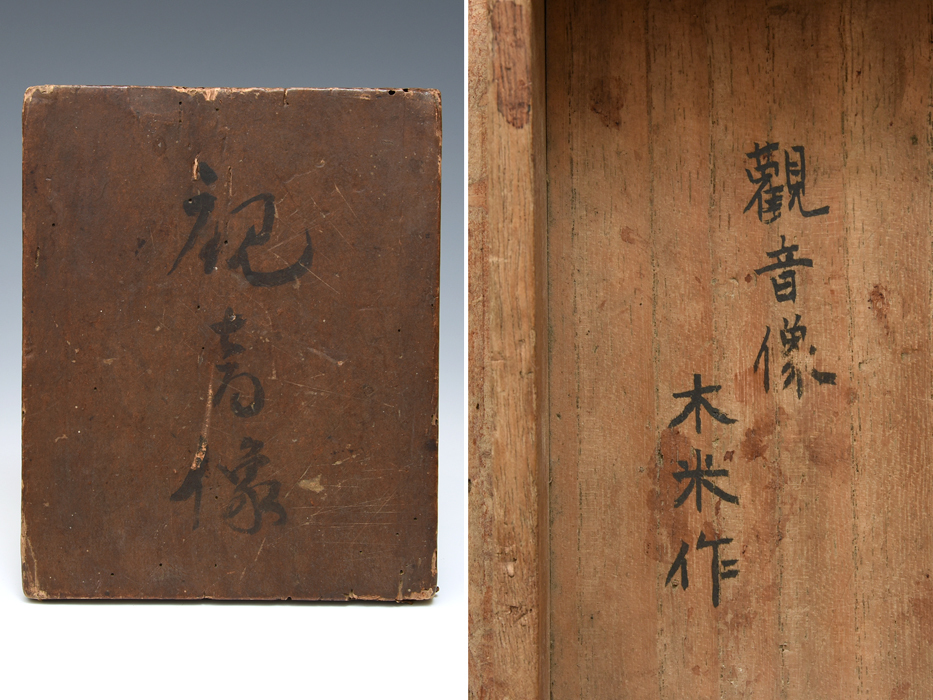 観音像
觀音像
木米作